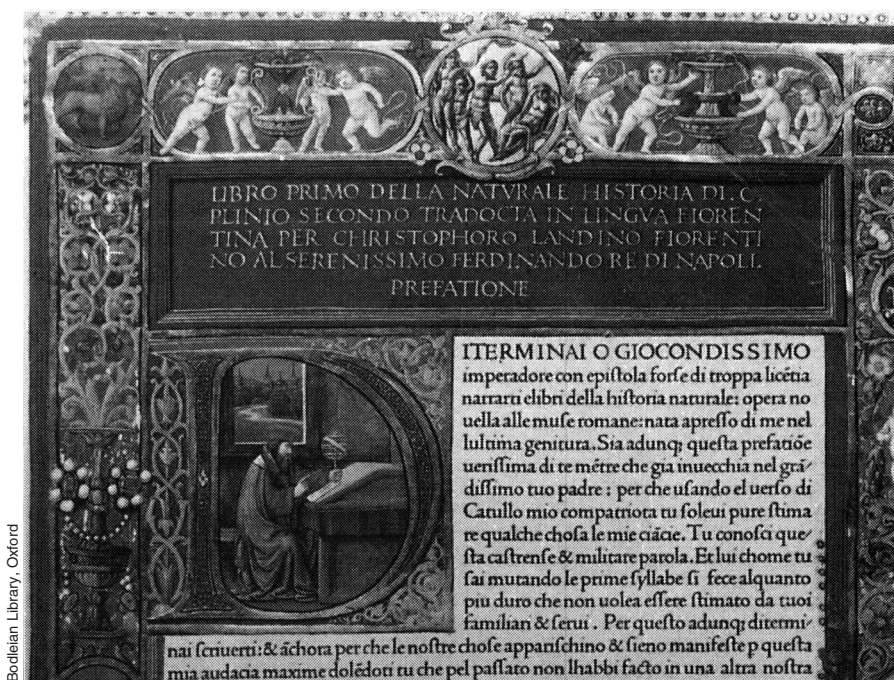 LIBRO PRIMO DELLA NATVRALE HISTORIA DI. C.
PLINIO SECONDO TRADOCTA IN LINGVA FIOREN
TINA PER CHRISTOPHORO LANDINO FIORENTI
NO AL SERENISSIMO FERDINANDO RE DI NAPOLI.
PREFATIONE
D
ITERMINAI O GIOCONDISSIMO
imperadore con epiſtola forſe di troppa licẽtia
narrarti elibri della hiſtoria naturale: opera no
uella alle muſe romane: nata apreſſo di me nel
lultima genitura. Sia adunq; queſta prefatiõe
ueriſſima di te mẽtre che gia inuecchia nel grã/
diſſimo tuo padre : per che uſando el uerſo di
Catullo mio compatriota tu ſoleui pure ſtima
re qualche choſa le mie ciãcie. Tu conoſci que/
ſta caſtrenſe & militare parola. Et lui chome tu
ſai mutando le prime ſyllabe ſi fece alquanto
piu duro che non uolea eſſere ſtimato da tuoi
familiari & ſerui . Per queſto adunq; ditermi/
nai ſcriuerti: & ãchora per che le noſtre choſe appariſchino & ſieno manifeſte p queſta
mia audacia maxime dolẽdoti tu che pel paſſato non lhabbi facto in una altra noſtra
Bodleian Library, Oxford